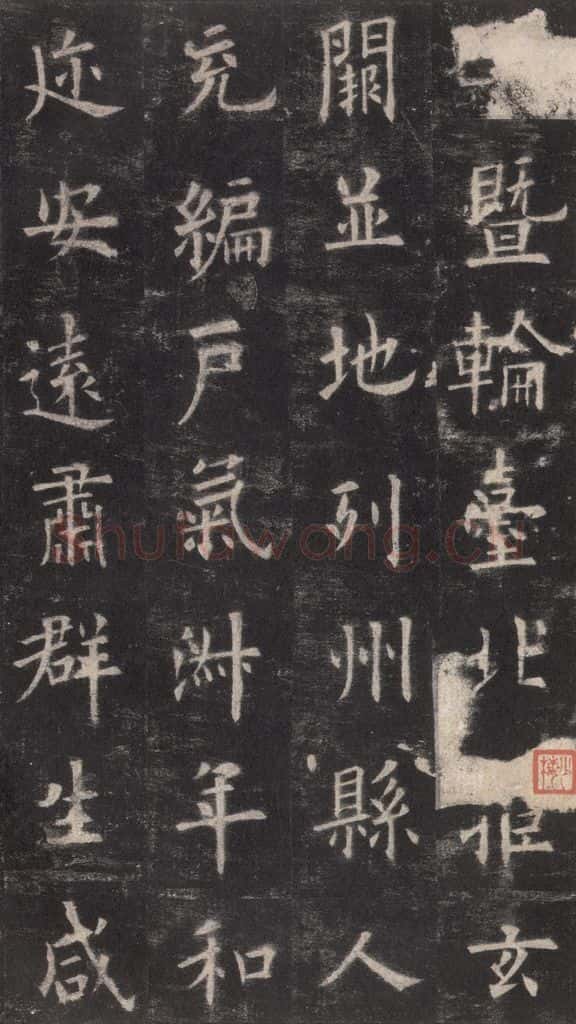 暨輪臺北玄
闕並地列州縣人
充編戶氣淑年和
迩安遠肅群生咸
shufawang.cn